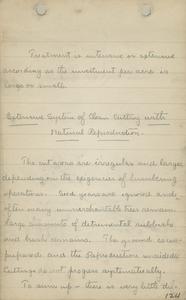 Treatment is intensive or extensive
according as the investment per acre is
large or small.
Extensive System of Clean Cutting with
Natural Reproduction.
The cut areas are irregular and large
depending on the exigencies of lumbering
operations. Seed years are ignored and
often many unmerchantable trees remain.
Large amounts of detrimental
and brush remains. The ground is not
prepared and the Reproduction unaided.
Cuttings do not progress systematically.
To sum up - there is very little
124